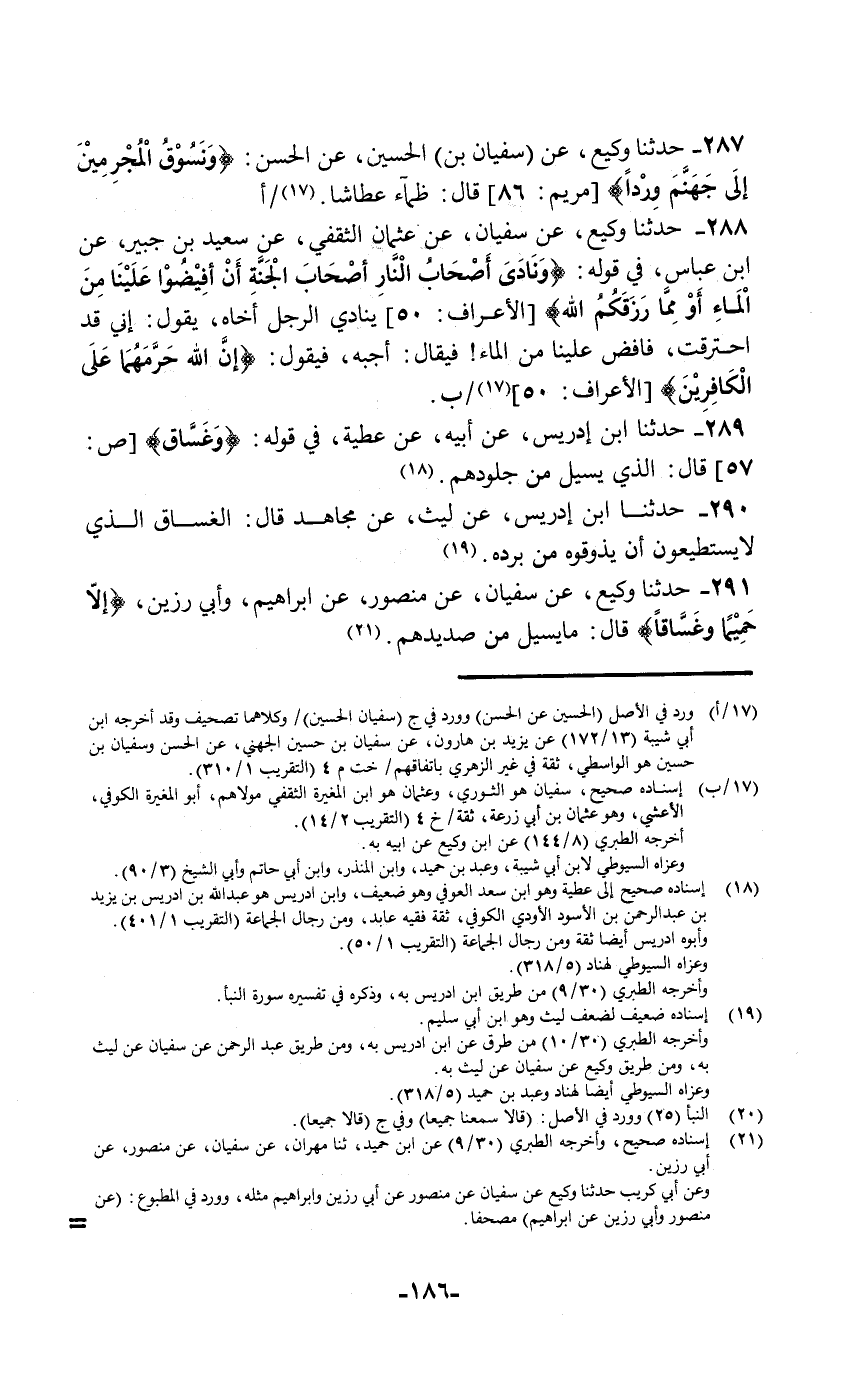 ٢٨٧ـ حدثنا وكيع، عن (سفيان بن) الحسين، عن الحسن: ﴿وَنَسُوْقُ الْمُجْرِمِيْنَ
إِلَى جَهَنَّمَ وِرْداً﴾ [مريم: ٨٦] قال: ظمآء عطاشا. (١٧)/أ
٢٨٨ـ حدثنا وكيع، عن سفيان، عن عثمان الثقفي، عن سعيد بن جبير، عن
ابن عباس، في قوله: ﴿وَنَادَىَ أَصْحَابُ النَّارِ أَصْحَابَ الْجَنَّةِ أَنْ أَفِيْضُوْا عَلَيْنَا مِنَ
الْمَاءِ أَوْ مِمَّا رَزَقَكُمُ الله﴾ [الأعراف: ٥٠] ينادي الرجل أخاه، يقول: إني قد
احترقت، فافض علينا من الماء! فيقال: أجبه، فيقول: ﴿إِنَّ الله حَرَّمَهُمَا عَلَى
الْكَافِرِيْنَ﴾ [الأعراف: ٥٠](١٧)/ب.
٢٨٩ـ حدثنا ابن إدريس، عن أبيه، عن عطية، في قوله: ﴿وَغَسَّاق﴾ [ص:
٥٧] قال: الذي يسيل من جلودهم. (١٨)
٢٩٠ـ حدثنا ابن إدريس، عن ليث، عن مجاهد قال: الغساق الذي
لايستطيعون أن يذوقوه من برده. (١٩)
٢٩١ـ حدثنا وكيع، عن سفيان، عن منصور، عن ابراهيم، وأبي رزين، ﴿إِلّا
حَمِيْمًا وغَسَّاقاً﴾ قال: مايسيل من صديدهم. (٢١)
(١٧/أ) ورد في الأصل (الحسين عن الحسن) وورد في ج (سفيان الحسين)/ وكلاهما تصحيف وقد أخرجه ابن
أبي شيبة (١٣/١٧٢) عن يزيد بن هارون، عن سفيان بن حسين الجهني، عن الحسن وسفيان بن
حسين هو الواسطي، ثقة في غير الزهري باتفاقهم/ خت م ٤ (التقريب ١/٣١٠).
(١٧/ب) إسناده صحيح، سفيان هو الثوري، وعثمان هو ابن المغيرة الثقفي مولاهم، أبو المغيرة الكوفي،
الأعشي، وهو عثمان بن أبي زرعة، ثقة/ خ ٤ (التقريب ٢/١٤).
أخرجه الطبري (٨/١٤٤) عن ابن وكيع عن ابيه به.
وعزاه السيوطي لابن أبي شيبة، وعبد بن حميد، وابن المنذر، وابن أبي حاتم وأبي الشيخ (٣/٩٠).
(١٨) إسناده صحيح إلى عطية وهو ابن سعد العوفي وهو ضعيف، وابن ادريس هو عبدالله بن ادريس بن يزيد
بن عبدالرحمن بن الأسود الأودي الكوفي، ثقة فقيه عابد، ومن رجال الجماعة (التقريب ١/٤٠١).
وأبوه ادريس أيضا ثقة ومن رجال الجماعة (التقريب ١/٥٠).
وعزاه السيوطي لهناد (٥/٣١٨).
وأخرجه الطبري (٣٠/٩) من طريق ابن ادريس به، وذكره في تفسيره سورة النبأ.
(١٩) إسناده ضعيف لضعف ليث وهو ابن أبي سليم.
وأخرجه الطبري (٣٠/١٠) من طرق عن ابن ادريس به، ومن طريق عبد الرحمن عن سفيان عن ليث
به، ومن طريق وكيع عن سفيان عن ليث به.
وعزاه السيوطي أيضا لهناد وعبد بن حميد (٥/٣١٨).
(٢٠) النبأ (٢٥) وورد في الأصل: (قالا سمعنا جميعا) وفي ج (قالا جميعا).
(٢١) إسناده صحيح، وأخرجه الطبري (٣٠/٩) عن ابن حميد، ثنا مهران، عن سفيان، عن منصور، عن
أبي رزين.
وعن أبي كريب حدثنا وكيع عن سفيان عن منصور عن أبي رزين وابراهيم مثله، وورد في المطبوع: (عن
منصور وأبي رزين عن ابراهيم) مصحفا. =
-١٨٦-